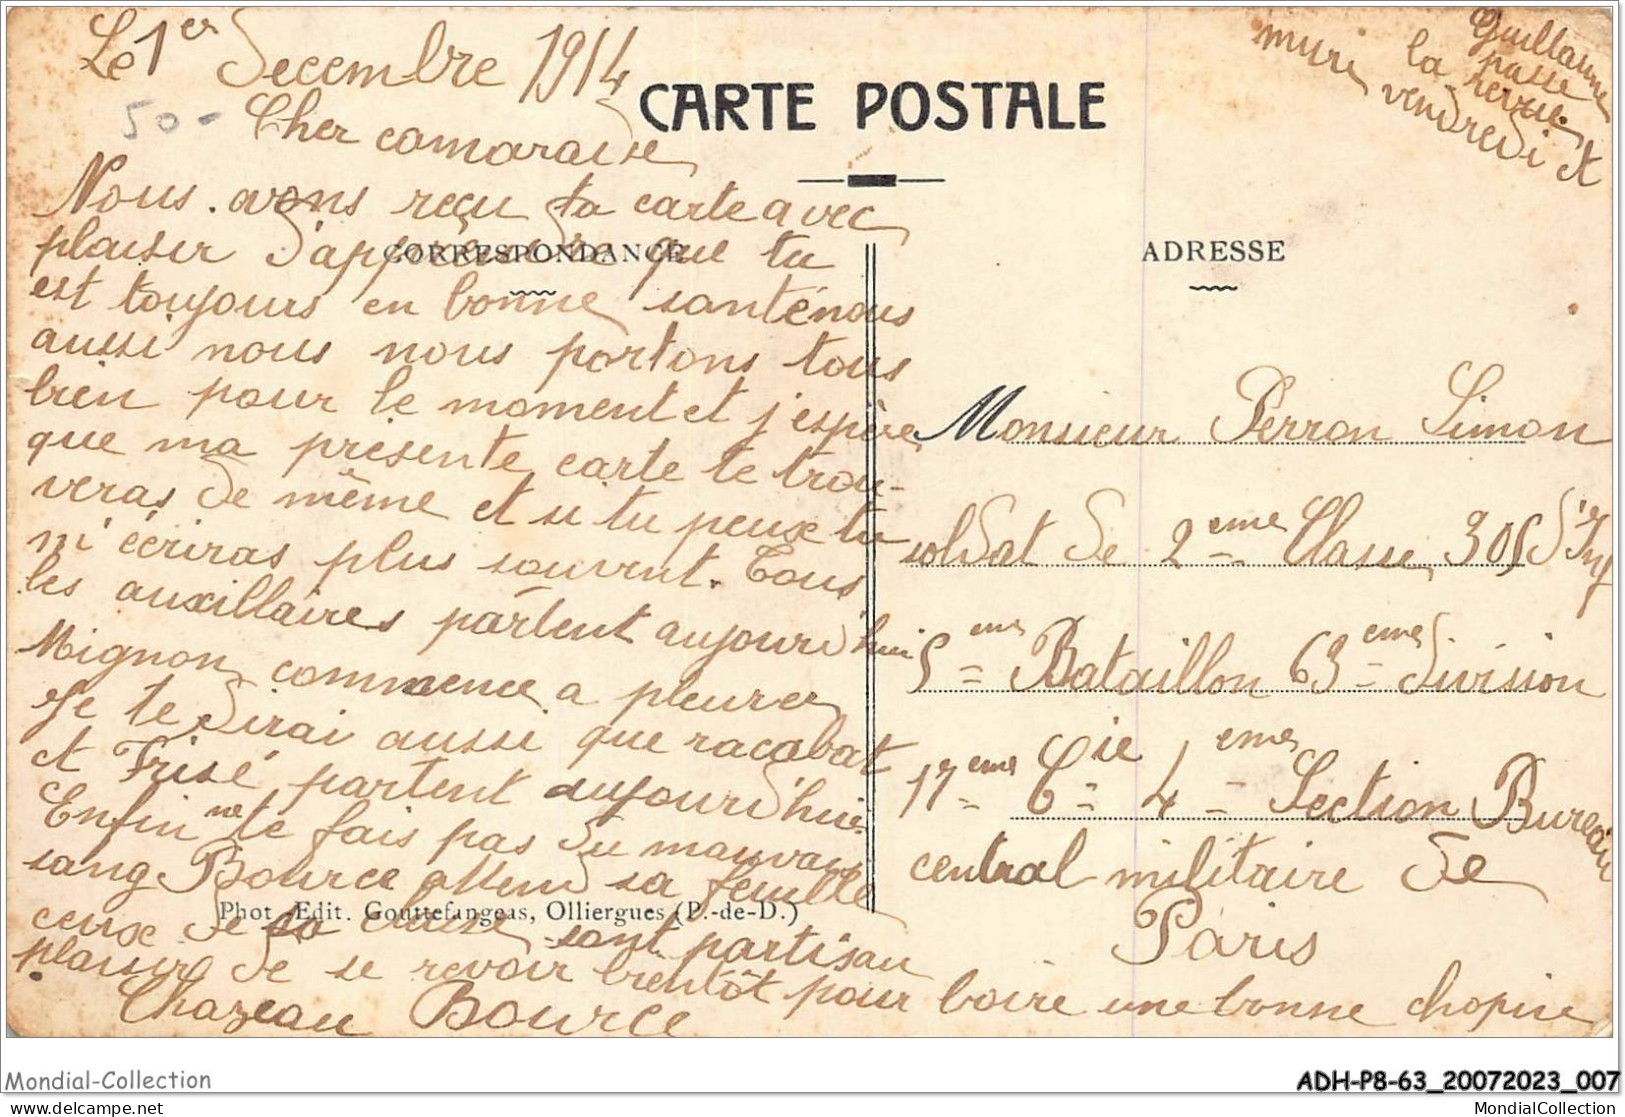 Le 1er Decembre 1914
50-
Cher camaraise
Nous avons reçu ta carte avec
plaisir d'apprendre que tu
est toujours en bonne santé nous
aussi nous nous portons tous
bien pour le moment et j'espère
que ma présente carte te trou-
veras de même et si tu peux tu
m'écriras plus souvent. Tous
les auxillaires partent aujourd'hui
Mignon commence a pleurer
Je te dirai aussi que racabat
et Frisé partent aujourd'hui.
Enfin ne te fais pas du mauvais
sang Bource attend sa feuille
ceux de sa classe sont partis au
plaisir de se revoir bientôt pour boire une bonne chopine
Chazeau Bource
CARTE POSTALE
CORRESPONDANCE
ADRESSE
Guillaume
passe
la revue.
muri vendredi et
Monsieur Perron Simon
soldat de 2eme Classe 305 d'Inf
5eme Bataillon 63eme Division
17eme Cie 4eme Section Bureau
central militaire de
Paris
Phot. Edit. Gouttefangeas, Olliergues (P.-de-D.)
Mondial-Collection
ADH-P8-63_20072023_007
delcampe.net
MondialCollection